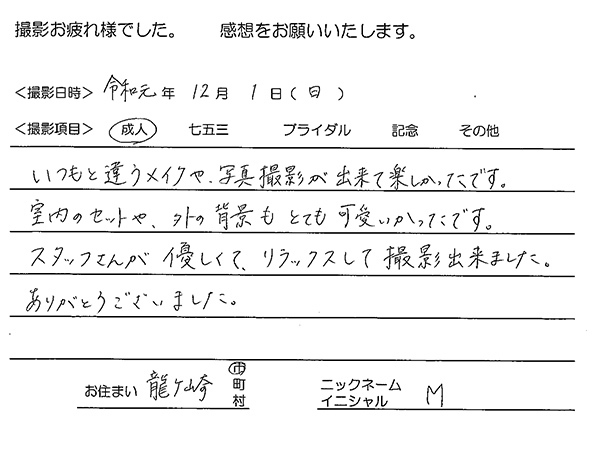 撮影お疲れ様でした。 感想をお願いいたします。
<撮影日時> 令和元年 12月 1日(日)
<撮影項目> 成人 七五三 ブライダル 記念 その他
いつもと違うメイクや、写真撮影が出来て楽しかったです。
室内のセットや、外の背景もとても可愛いかったです。
スタッフさんが優しくて、リラックスして撮影出来ました。
ありがとうございました。
お住まい 龍ケ崎 市 町 村
ニックネーム イニシャル M